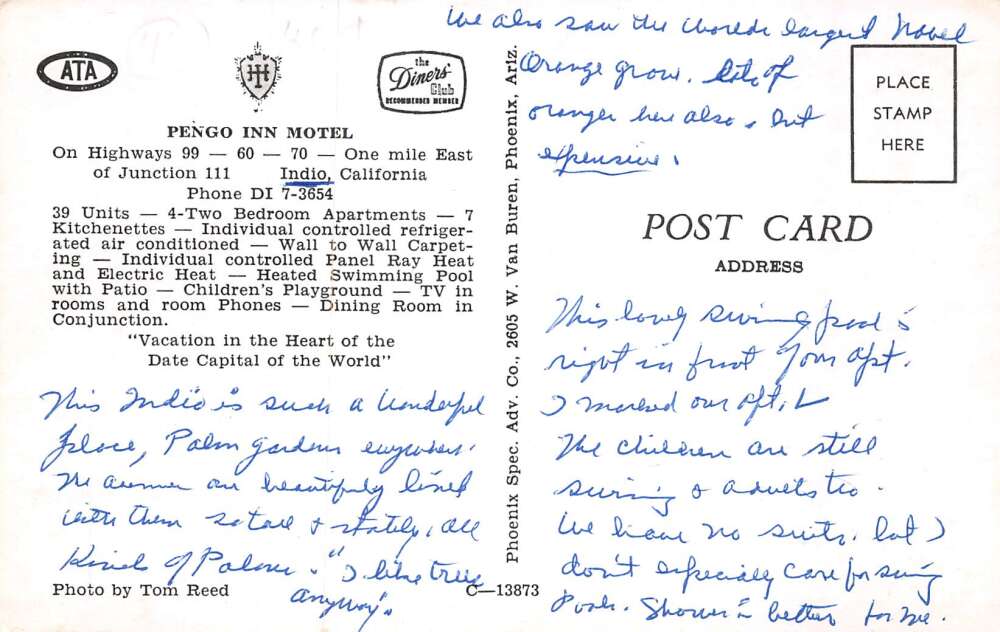 ATA
HH
the
Diners'
Club
RECOMMENDED MEMBER
PENGO INN MOTEL
On Highways 99 — 60 — 70 — One mile East
of Junction 111 Indio, California
Phone DI 7-3654
39 Units — 4-Two Bedroom Apartments — 7
Kitchenettes — Individual controlled refriger-
ated air conditioned — Wall to Wall Carpet-
ing — Individual controlled Panel Ray Heat
and Electric Heat — Heated Swimming Pool
with Patio — Children's Playground — TV in
rooms and room Phones — Dining Room in
Conjunction.
"Vacation in the Heart of the
Date Capital of the World"
This Indio is such a wonderful
place, Palm gardens everywhere.
The avenues are beautifully lined
with them so tall & stately, all
kinds of Palms. "I like trees
anyway".
Photo by Tom Reed
C—13873
Phoenix Spec. Adv. Co., 2605 W. Van Buren, Phoenix, Ariz.
We also saw the worlds largest Navel
Orange grove. Lots of
oranges here also, but
expensive.
PLACE
STAMP
HERE
POST CARD
ADDRESS
This lovely swiming pool is
right in front of our apt.
I marked our apt.
The children are still
swiming & adults too.
We have no suits, but I
don't especially care for swing
Pools. Shower is better for me.